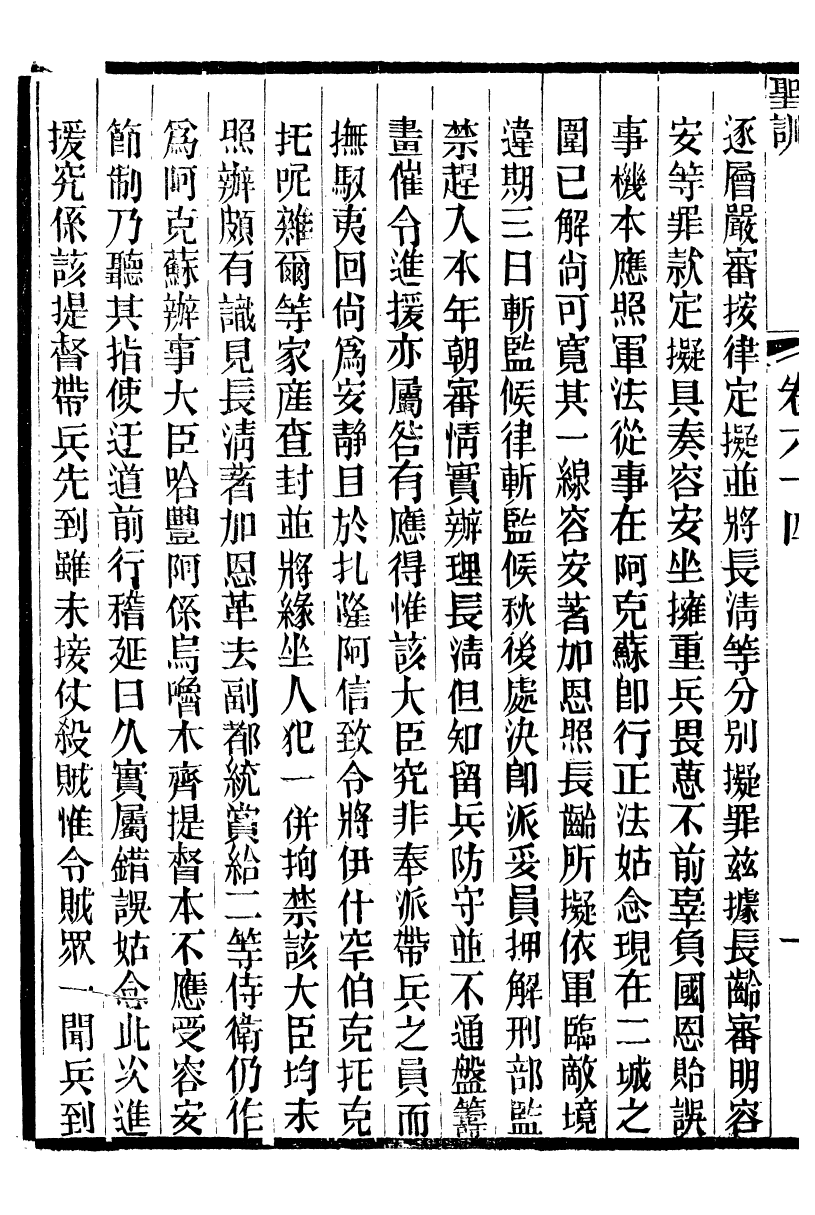 聖訓 卷六十四 一
逐層嚴審按律定擬並將長淸等分別擬罪茲據長齡審明容
安等罪款定擬具奏容安坐擁重兵畏葸不前辜負國恩貽誤
事機本應照軍法從事在阿克蘇卽行正法姑念現在二城之
圍已解尙可寬其一線容安著加恩照長齡所擬依軍臨敵境
違期三日斬監候律斬監候秋後處決卽派妥員押解刑部監
禁趕入本年朝審情實辦理長淸但知留兵防守並不通盤籌
畫催令進援亦屬咎有應得惟該大臣究非奉派帶兵之員而
撫馭夷回尙爲安靜且於扎隆阿信致令將伊什罕伯克托克
托呢雜爾等家產查封並將緣坐人犯一併拘禁該大臣均未
照辦頗有識見長淸著加恩革去副都統賞給二等侍衛仍作
爲阿克蘇辦事大臣哈豐阿係烏嚕木齊提督本不應受容安
節制乃聽其指使迂道前行稽延日久實屬錯誤姑念此次進
援究係該提督帶兵先到雖未接仗殺賊惟令賊眾一聞兵到